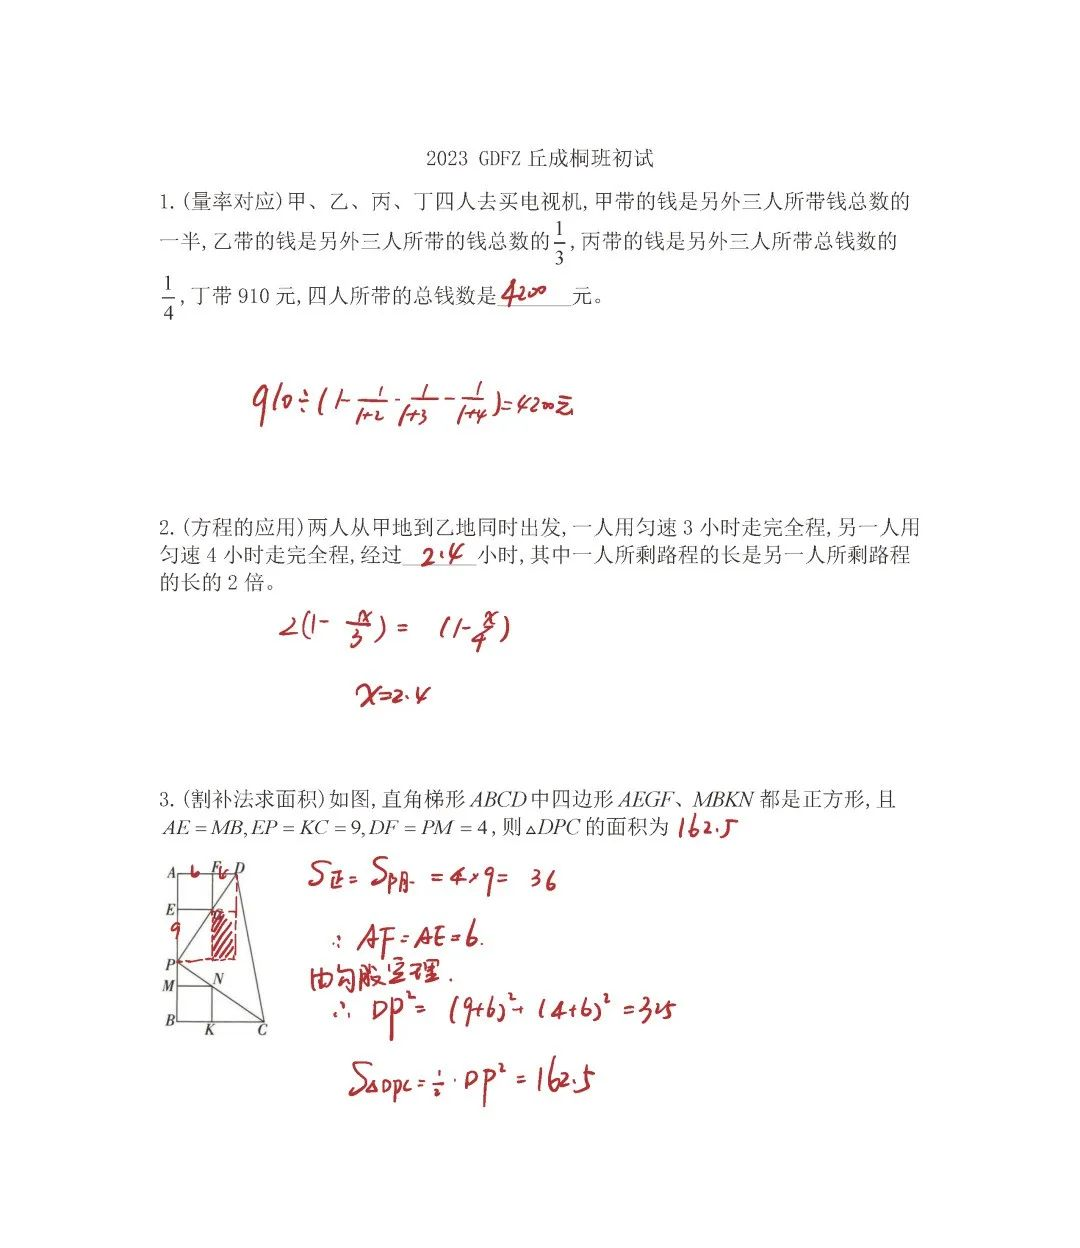 2023 GDFZ 丘成桐班初试
1.(量率对应)甲、乙、丙、丁四人去买电视机,甲带的钱是另外三人所带钱总数的
一半,乙带的钱是另外三人所带的钱总数的1/3,丙带的钱是另外三人所带总钱数的
1/4,丁带910元,四人所带的总钱数是4200元。
910÷(1-1/(1+2)-1/(1+3)-1/(1+4))=4200元
2.(方程的应用)两人从甲地到乙地同时出发,一人用匀速3小时走完全程,另一人用
匀速4小时走完全程,经过2.4小时,其中一人所剩路程的长是另一人所剩路程
的长的2倍。
2(1-x/3)=(1-x/4)
x=2.4
3.(割补法求面积)如图,直角梯形ABCD中四边形AEGF、MBKN都是正方形,且
AE=MB,EP=KC=9,DF=PM=4,则△DPC的面积为162.5
A 6 F 6 D
E G
9
P
M N
B K C
S正=S阴=4×9=36
∴AF=AE=6.
由勾股定理.
∴DP²=(9+6)²+(4+6)²=325
S△DPC=1/2·DP²=162.5